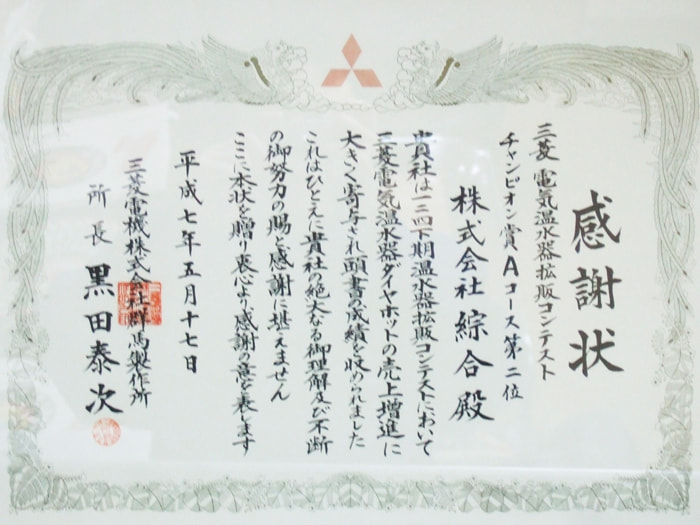 感謝状
三菱電気温水器拡販コンテスト
チャンピオン賞Aコース第二位
株式会社綜合殿
貴社は一三四下期温水器拡販コンテストにおいて
三菱電気温水器ダイヤホットの売上増進に
大きく寄与され頭書の成績を収められました
これはひとえに貴社の絶大なる御理解及び不断
の御努力の賜と感謝に堪えません
ここに本状を贈り衷心より感謝の意を表します
平成七年五月十七日
三菱電機株式会社群馬製作所
所長 黒田泰次